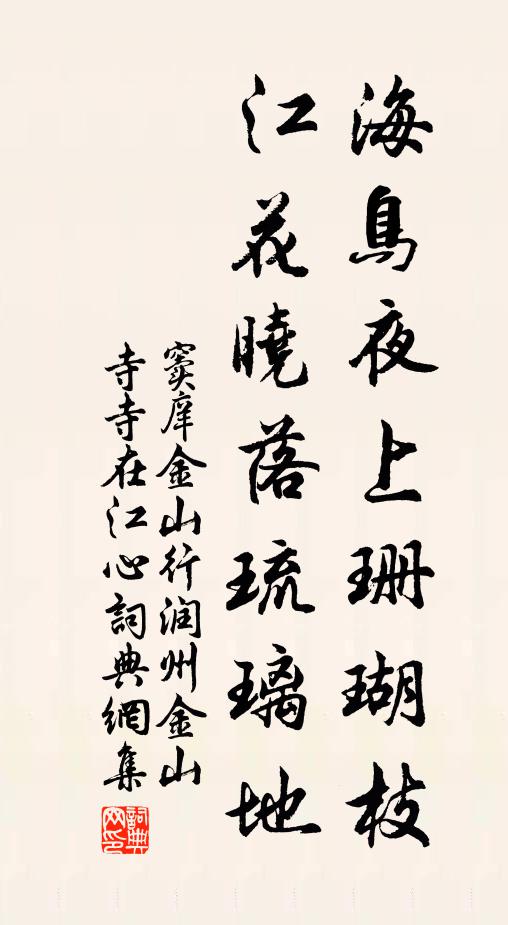 海鳥夜上珊瑚枝
江花曉落琉璃地
竇庠金山行润州金山
寺寺在江心詞典網集
詞典
网印